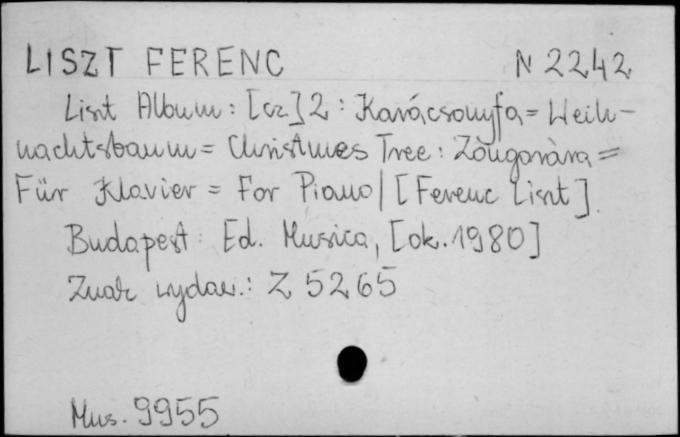 LISZT FERENC N 2242
Liszt Album : [cz.] 2 : Karácsonyfa = Weih-
nachtsbaum = Christmes Tree : Zongorára =
Für Klavier = For Piano / [Ferenc Liszt]
Budapest : Ed. Musica, [ok. 1980]
Znak wydaw. : Z 5265
Mus. 9955